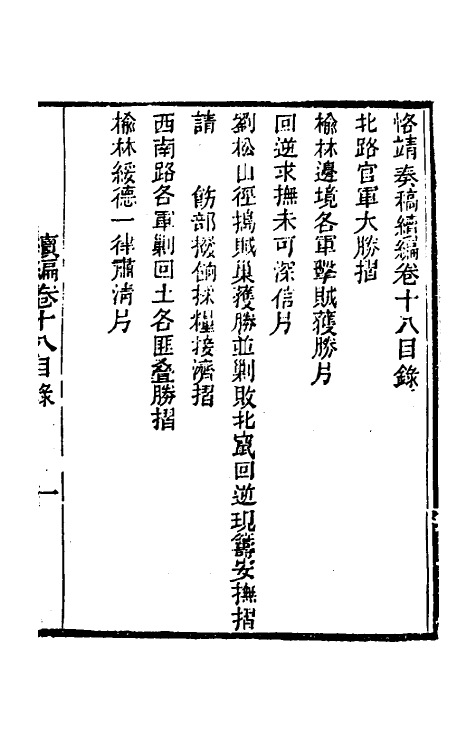 恪靖奏稿續編卷十八目錄
北路官軍大勝摺
榆林邊境各軍擊賊獲勝片
回逆求撫未可深信片
劉松山徑搗賊巢獲勝並剿敗北竄回逆現籌安撫摺
請　飭部撥餉採糧接濟摺
西南路各軍剿回土各匪叠勝摺
榆林綏德一律肅淸片
續編卷十八目錄
一